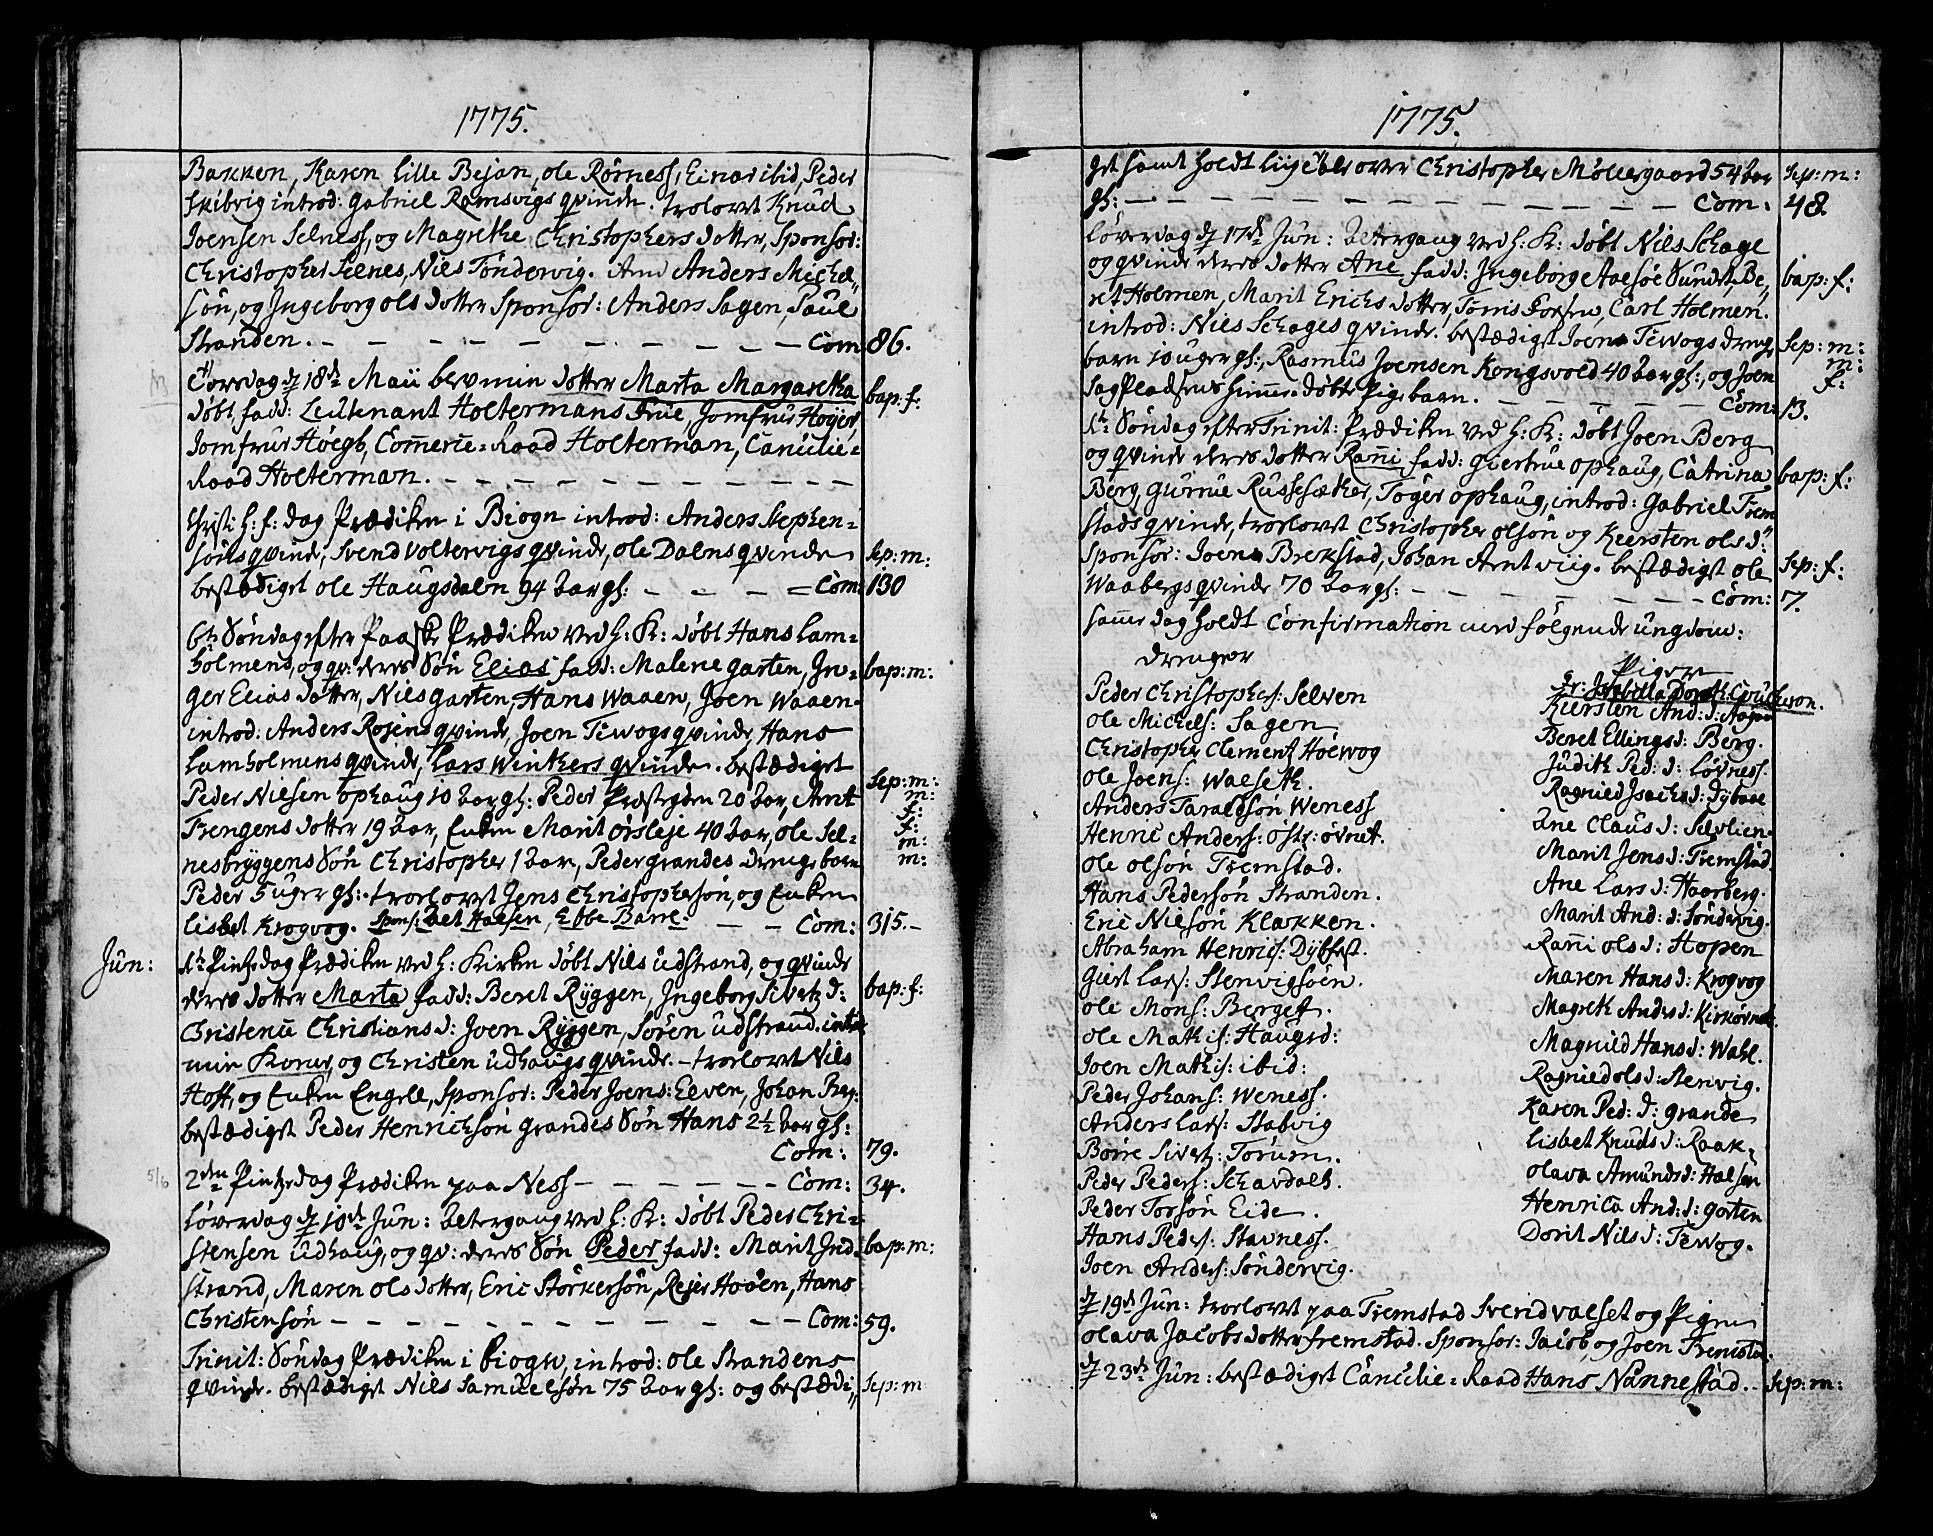 1775.
Bakken, Karen lille Bejan, ole Rörness, Einar ibid, Peder
Skibvig introd: Gabriel Ramsvigs qvinde. trolovt Knud
Joensen Selness, og Magrethe Christophers dotter, Sponsor:
Christopher Selnes, Niels Söndervig. item Anders Michel
sön, og Ingeborg ols dotter Sponsor: Anders Sagen, Paul
Stranden. Com 86.
Torsdag d 18de Maii blev min dotter Marta Margaretha bap: f:
döbt. fadd: Leutenant Holtermans Frue Jomfrue Hoyer
Jomfrue Höegh, Comerce=Raad Holterman, Cancelie=
Raad Holterman.
Christi H: f: dag Prædiken i Biogn introd: Anders Stephen=
söns qvinde, Svend Voltervigs qvinde, ole Dalens qvinde Sep: m:
bestædiget ole Haugsdalen 94 aar gl: Com: 130
6te Söndag efter Paaske Prædiken ved H: K: döbt Hans Lam=
holmens, og qv: deres Sön Elias fadd: Malene garten, In= bap: m:
ger Elias dotter, Niels garten, Hans Waaen, Joen Waaen.
introd: Anders Rosens qvinde, Joen Tewogs qvinde, Hans
Lamholmens qvinde, Lars Winthers qvinde. bestædiget
Peder Nielsen ophaug 10 aar gl: Peder Præstegden 20 aar, Arnt Sep: m: m:
Trengens dotter 19 aar, Enken Marit örsleje 40 aar, ole Sel= f: f:
nesbryggens Sön Christopher 1 aar, Peder grandes drenge barn m: m:
Peder 5 uger gl: trolovt Jens Christophersön, og Enken
Lisbet Krogvog. Spons: Halsen, Ebbe Com: 315.
Jun:
1te Pintzdag Prædiken ved H: Kirken döbt Niels udstrand, og qvinde
deres dotter Marta fadd: Beret Ryggen, Ingeborg Sivertz d: bap: f:
Christence Christians d: Joen Ryggen, Sören udstrand. introd
min Kone, og Christen udhaugs qvinde. - trolovt Niels
Hoff, og Enken Engell, Sponsor: Peder Joens: Elven, Johan
bestædiget Peder Henrichsön grandes Sön Hans 2½ aar gl:
Com: 79.
5/6
2den Pintzedag Prædiken paa Ness Com: 34.
Löverdag d 10de Jun: altergang ved H: K: döbt Peder Chri=
stensen udhaug, og qv: deres Sön Peder fadd: Marit Ind= bap: m:
strand, Maren ols dotter, Eric Störkersön, Rejer Hoöen, Hans
Christensön Com: 59.
Trinit: Söndag Prædiken i Biogn, introd: ole Strandens
qvinde. bestædiget Niels Samuelsön 75 aar gl: og bestædi, Sep: m
1775.
get samt holdt liig over Christopher Möllergaard 54 aar Sep: m:
gl: Com: 48.
Löverdag d 17de Jun: altergang ved H: K: döbt Niels Schage
og qvinde deres dotter Ane fadd: Ingeborg Aalsöe Sundet, Be, bap: f:
ret Holmen, Marit Erichs dotter, Tönis Forsen, Carl Holmen.
introd: Niels Schages qvinde. bestædiget Joen Tewogs drenge Sep: m:
barn 10 uger gl:, Rasmus Joensen Kongsvold 40 aar gl:, og Joen m:
Sagpladsens hjemmedöbte Pigebarn. Com: 13. f:
1te Söndag efter Trinit: Prædiken ved H: K: döbt Joen Berg
og qvinde deres dotter Ranni fadd: giertrue ophaug, Catrina bap: f:
Berg, gurrue Russesæther, Töger ophaug, introd: Gabriel Trem
stads qvinde, trolovt Christopher olsön og Kiersten ols d:
Sponsor: Joen Brekstad, Johan Arntvig. bestædiget ole Sep: f:
Waabergs qvinde 70 aar gl: Com: 7.
samme dag holdt Confirmation med fölgende ungdom:
drenger
Piger
Peder Christophers: Selven
ole Michels: Sagen
Christopher Clement Hoewog
ole Joens: Walseth.
Anders Taraldsön Weness
Henric Anders: östr: övnet.
ole olsön Tremstad.
Hans Pedersön Stranden.
Eric Nielsön Klakken.
Abraham Henrics: Dybfest.
Giert Lars: Stenvigsöen.
ole Mons: Berget.
ole Mathis: Haugsd:
Joen Mathis: ibid:
Peder Johans: Weness.
Anders Lars: Stabvig
Börre Sivert: Tørum.
Peder Peders: Schavdahl.
Peder Torsön Eide.
Hans Peders: Stavness.
Joen Anders: Söndervig.
Jr: Isebilla Doroth: Coucheron.
Kiersten And: d:
Beret Ellings d: Berg.
Judith Ped: d: Lövness.
Ragnied Isachs d: Dybase
Ane Claus d: Selvlien.
Marit Jens d: Tremstad
Ane Lars d: Haarberg.
Marit And: d: Söndervig.
Ranni ols d: Hopen
Maren Hans d: Krogvog
Magreth Anders d: Kirkövnet.
Magnild Hans d: Wahl.
Ragnied ols d: Stenvig.
Karen Ped: d: grande
Lisbet Knuds d: Raak=
olava Amunds d: Halsen
Henrica And: d: garten
Dorit Niels d: Tewog.
d 19de Jun: trolovt paa Tremstad Svend Valset og Pigen
olava Jacobs dotter fremstad. Sponsor: Jacob, og Joen Fremsta.
d 23de Jun: bestædiget Cancelie=Raad Hans Nannestad. Sep: m: